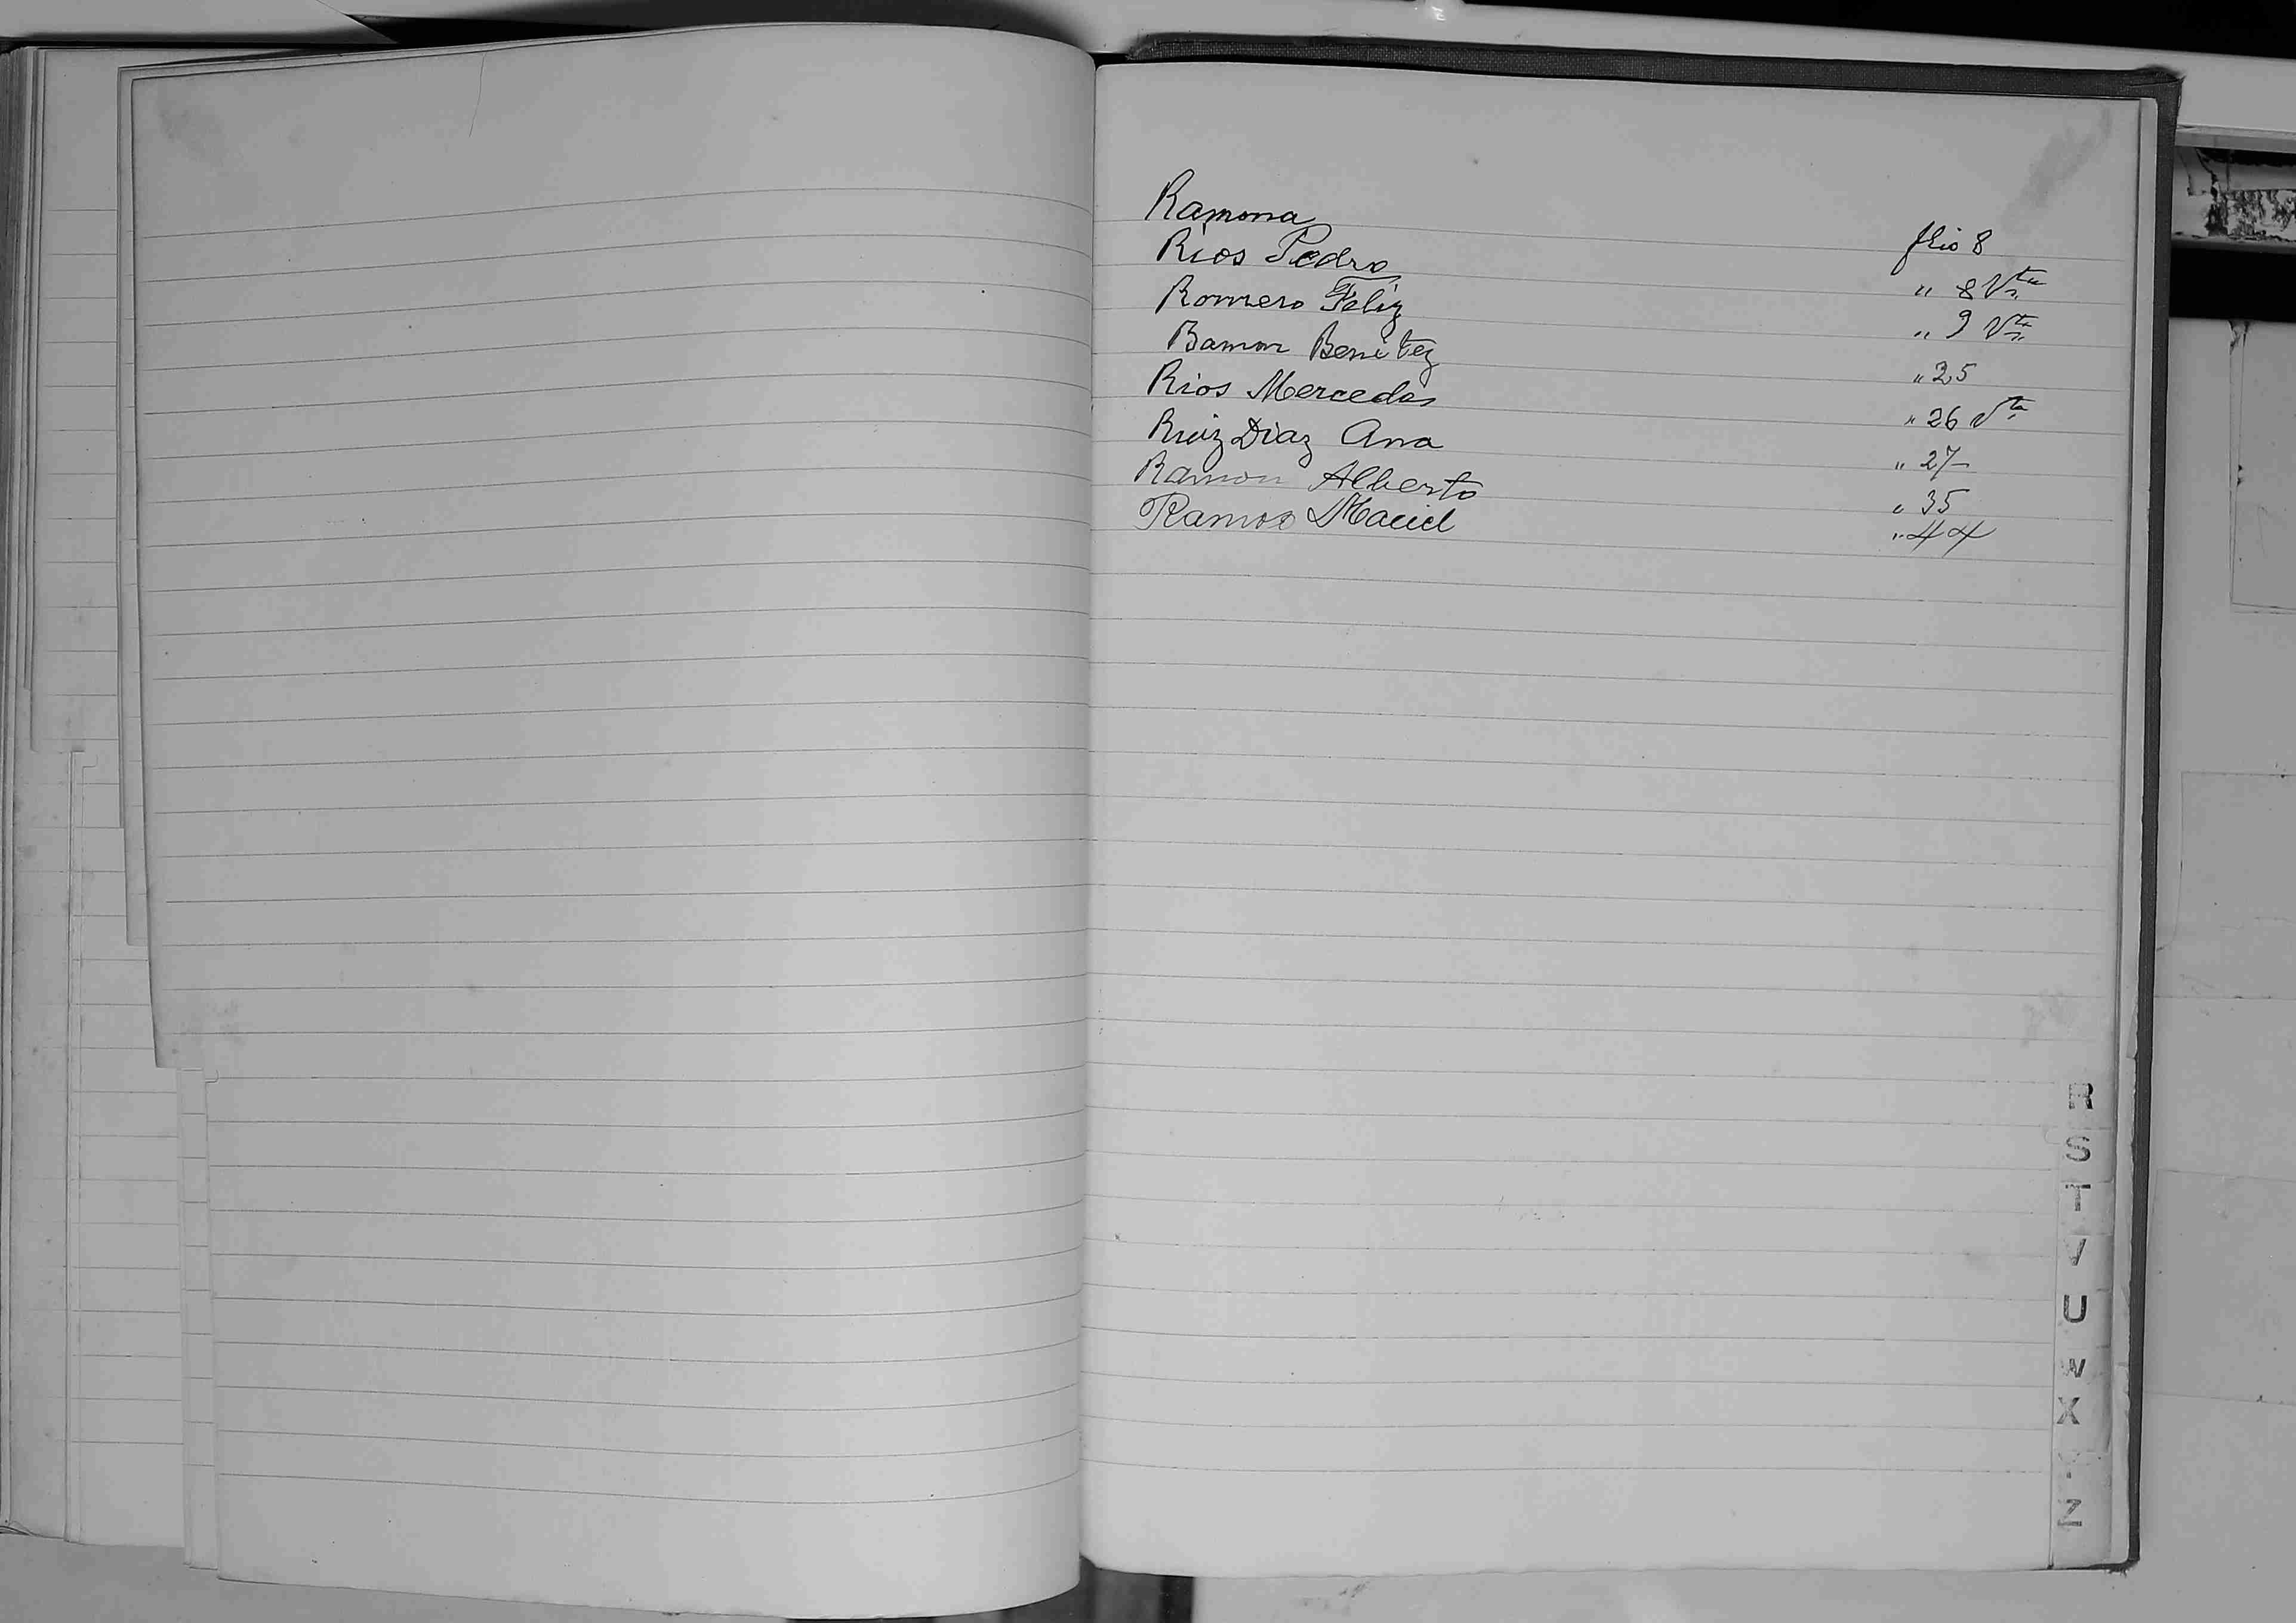 Ramona folio 8
Ríos Pedro " 8 Vta
Romero Feliz " 9 Vta
Bamon Benitez " 25
Rios Mercedes " 26 Vta
Ruiz Diaz Ana " 27-
Ramon Alberto " 35
Ramos Maciel " 44
R
S
T
V
U
W
X
Y
Z